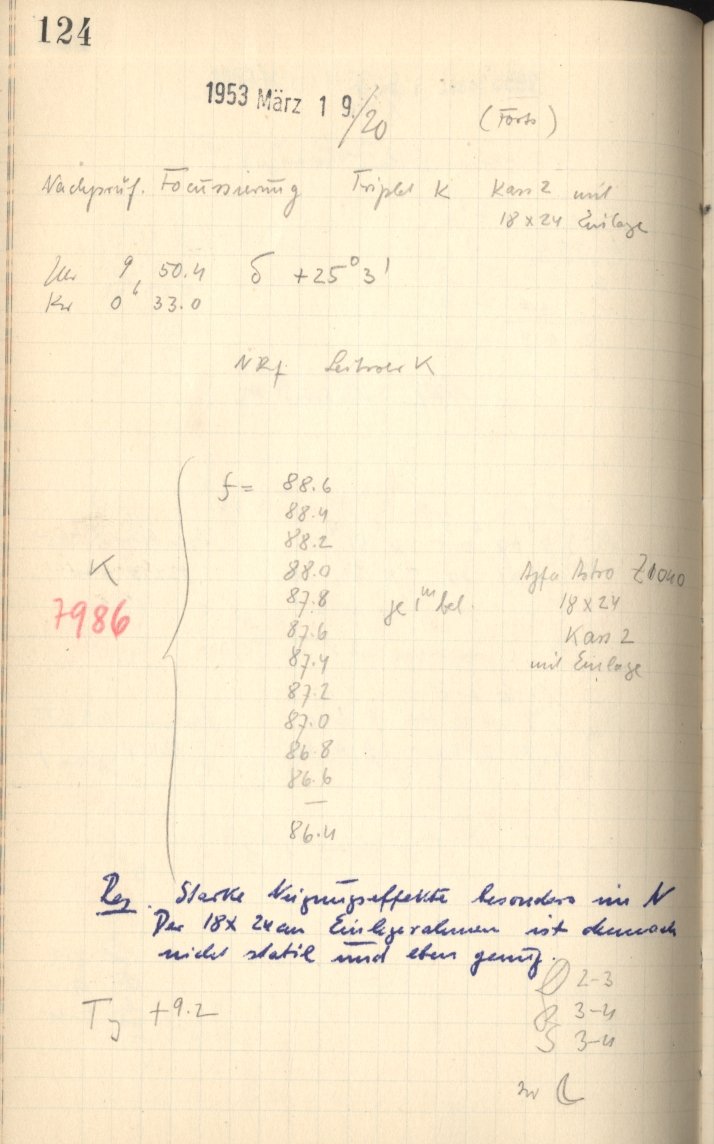 124
1953 März 19/20 (Forts)
Nachprüf. Focussierung Triplet K Kass 2 mit
18x24 Einlage
Uhr 9 50.4 δ +25° 3'
Kor 0h 33.0
NRf Leitrohr K
f = 88.6
88.4
88.2
88.0
87.8
87.6
87.4
87.2
87.0
86.8
86.6
—
86.4
K
7986
je 1m bel.
Agfa Astro Z1040
18x24
Kass 2
mit Einlage
Starke Neigungseffekte besonders im N
Der 18x24cm Einlegerahmen ist demnach
nicht stabil und eben genug.
2-3
3-4
S 3-4
T +9.2